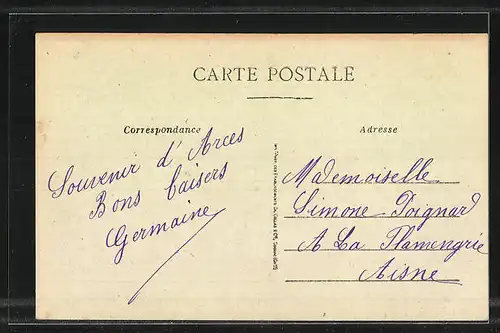 CARTE POSTALE
Correspondance
Souvenir d'Arces
Bons baisers
Germaine
Adresse
Mademoiselle
Simone Poignard
A La Flamengrie
Aisne